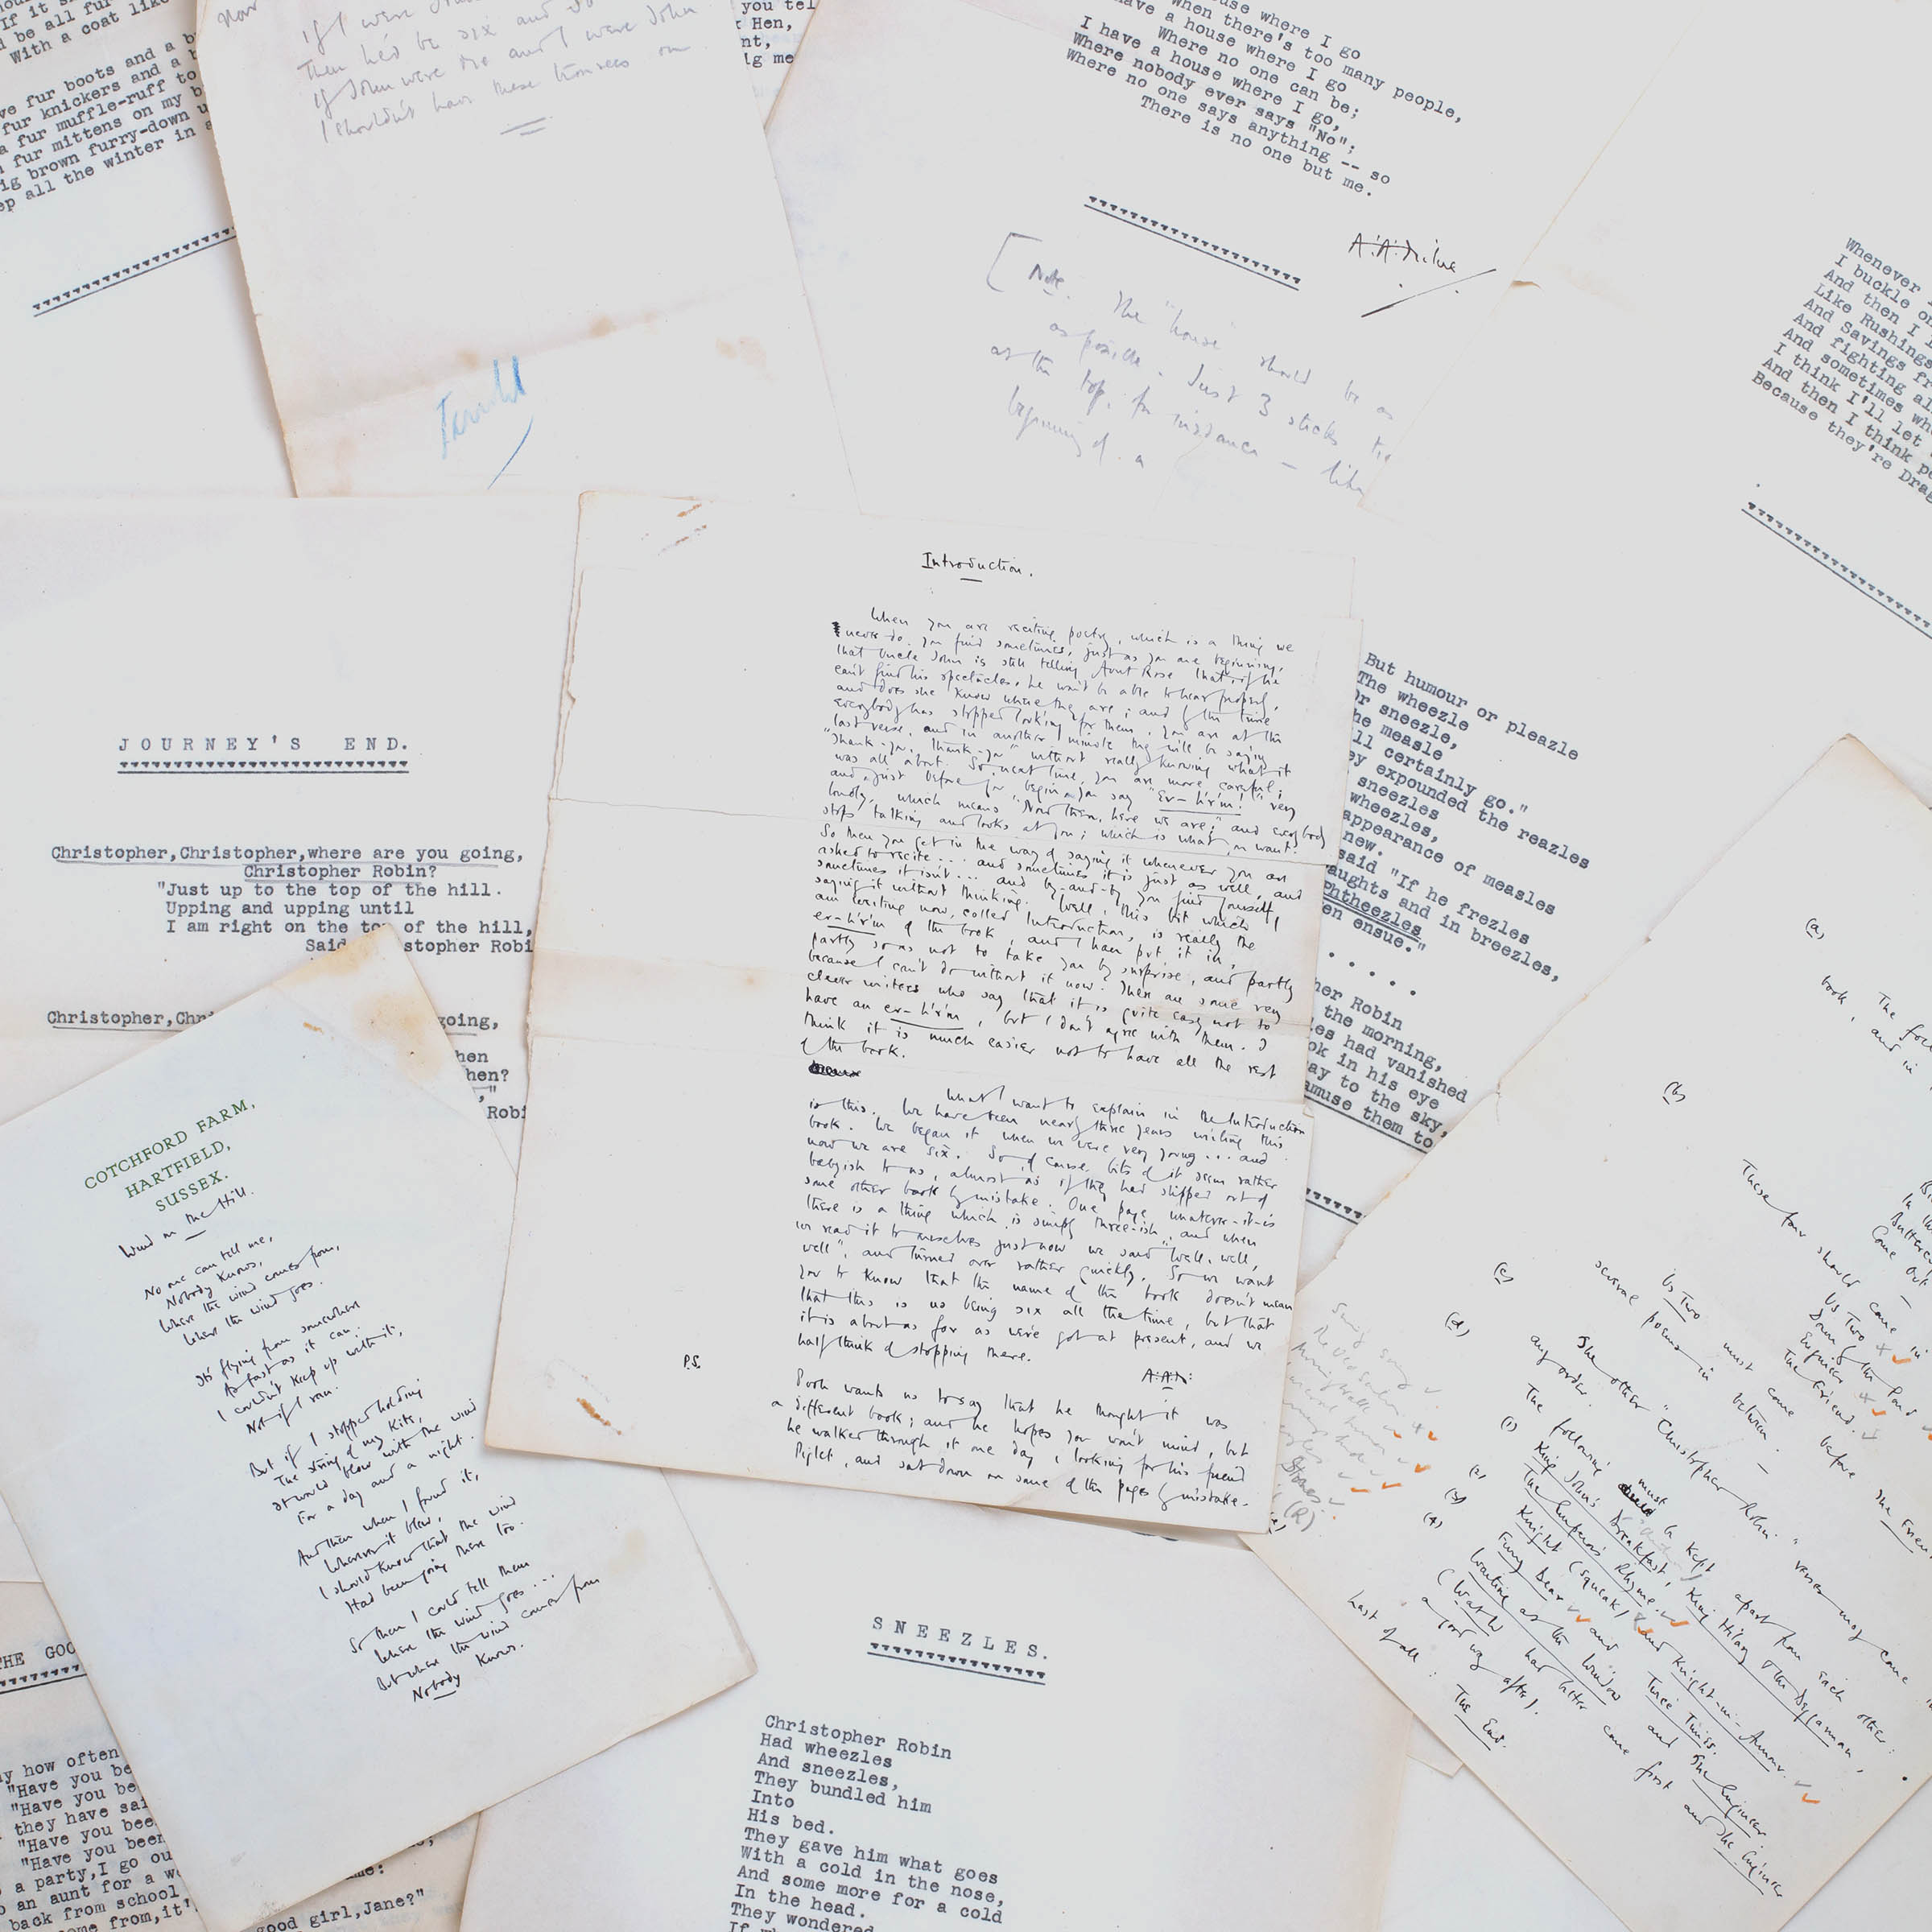 If it s
be all fur
With a coat like
ve fur boots and a b
fur knickers and a h
a fur muffle-ruff to
fur mittens on my b
ig brown furry-down u
ep all the winter in a
If I were
Then he'd be six and
If John were me and I were John
I shouldn't have these trousers on
you tel
Hen,
nt,
ig me
use where I go
When there's too many people,
ave a house where I go
Where no one can be;
I have a house where I go,
Where nobody ever says "No";
Where no one says anything -- so
There is no one but me.
A.A. Milne
[Note. The "house" should be as
as possible. Just 3 sticks tie
at the top, for instance — like
beginning of a
Whenever I
I buckle on
And then I
Like Rushings
And Savings fr
And fighting al
And sometimes wh
I think I'll let
And then I think p
Because they're Drag
JOURNEY'S END.
Christopher,Christopher,where are you going,
Christopher Robin?
"Just up to the top of the hill.
Upping and upping until
I am right on the top of the hill,
Said stopher Robi
Christopher,Chr going,
hen
hen?
,"
Robi
Introduction.
When you are reciting poetry, which is a thing we
never do, you find sometimes, just as you are beginning,
that Uncle John is still telling Aunt Rose that if he
can't find his spectacles, he won't be able to hear properly,
and does she know where they are; and by the time
everybody has stopped looking for them, you are at the
last verse, and in another minute they will be saying
"Thank-you, thank-you" without really knowing what it
was all about. So, next time, you are more careful;
and, just before you begin you say "Er-h'r'm!" very
loudly, which means "Now then, here we are;" and everybody
stops talking and looks at you; which is what you want.
So then you get in the way of saying it whenever you are
asked to recite... and sometimes it is just as well, and
sometimes it isn't... and by-and-by you find yourself
saying it without thinking. Well, this bit which I
am writing now, called Introduction, is really the
er-h'r'm of the book, and I have put it in,
partly so as not to take you by surprise, and partly
because I can't do without it now. There are some very
clever writers who say that it is quite easy not to
have an er-h'r'm, but I don't agree with them. I
think it is much easier not to have all the rest
of the book.
What I want to explain in the Introduction
is this. We have been nearly three years writing this
book. We began it when we were very young... and
now we are six. So, of course, bits of it seem rather
babyish to us, almost as if they had slipped out of
some other book by mistake. One page whatever-it-is
there is a thing which is simply three-ish, and when
we read it to ourselves just now we said "Well, well,
well", and turned over rather quickly. So we want
you to know that the name of the book doesn't mean
that this is us being six all the time, but that
it is about as far as we've got at present, and we
half think of stopping there.
A.A.M.
P.S.
Pooh wants us to say that he thought it was
a different book; and he hopes you won't mind, but
he walked through it one day, looking for his friend
Piglet, and sat down on some of the pages by mistake.
But humour or pleazle
The wheezle
Or sneezle,
he measle
ll certainly go."
ey expounded the reazles
sneezles
wheezles,
appearance of measles
new.
said "If he frezles
aughts and in breezles,
Phtheezles
en ensue."
. . . . .
her Robin
the morning,
es had vanished
ok in his eye
ay to the sky,
amuse them to
COTCHFORD FARM,
HARTFIELD,
SUSSEX.
Wind on the Hill.
No one can tell me,
Nobody knows,
Where the wind comes from,
Where the wind goes.
It's flying from somewhere
As fast as it can.
I couldn't keep up with it,
Not if I ran.
But if I stopped holding
The string of my kite,
It would blow with the wind
For a day and a night.
And then when I found it,
Wherever it blew,
I should know that the wind
Had been going there too.
So then I could tell them
Where the wind goes...
But where the wind comes from
Nobody knows.
(a)
The fo
book, and in
(b)
These four should come in
Us Two
Down by the Pond
Engineer
The Friend.
(c)
Us Two must come before The Friend
several poems in between.
(d)
The other "Christopher Robin" verses may come in
any order.
(e)
The following must be kept apart from each other:
(1) King John's Breakfast, King Hilary & the Beggarman,
The Emperor's Rhyme.
(2) Knight (squeak) and Knight-in-Armour.
(3) Furry Bear and Twice Times.
(4) Waiting at the Window and The Engineer.
(Watch had better come first and The Engineer
a good way after).
Last of all: The End.
THE GOO
y how often
"Have you be
"Have you be
they have sai
"Have you bee
"Have you been
a party,I go ou
an aunt for a w
back from school
ome from,it'
good girl,Jane?"
SNEEZLES.
Christopher Robin
Had wheezles
And sneezles,
They bundled him
Into
His bed.
They gave him what goes
With a cold in the nose,
And some more for a cold
In the head.
They wondered